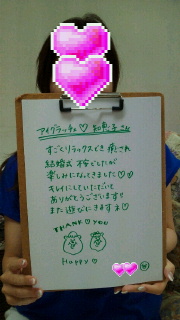 アイグラッチェ♡ 知恵子さん
すごくリラックスでき 癒され
結婚式 ドキドキしたが
楽しみになってきました♡
キレイにしていただいて
ありがとうございます!!
また遊びにきますネ♡
THANK♡YOU
Happy♡